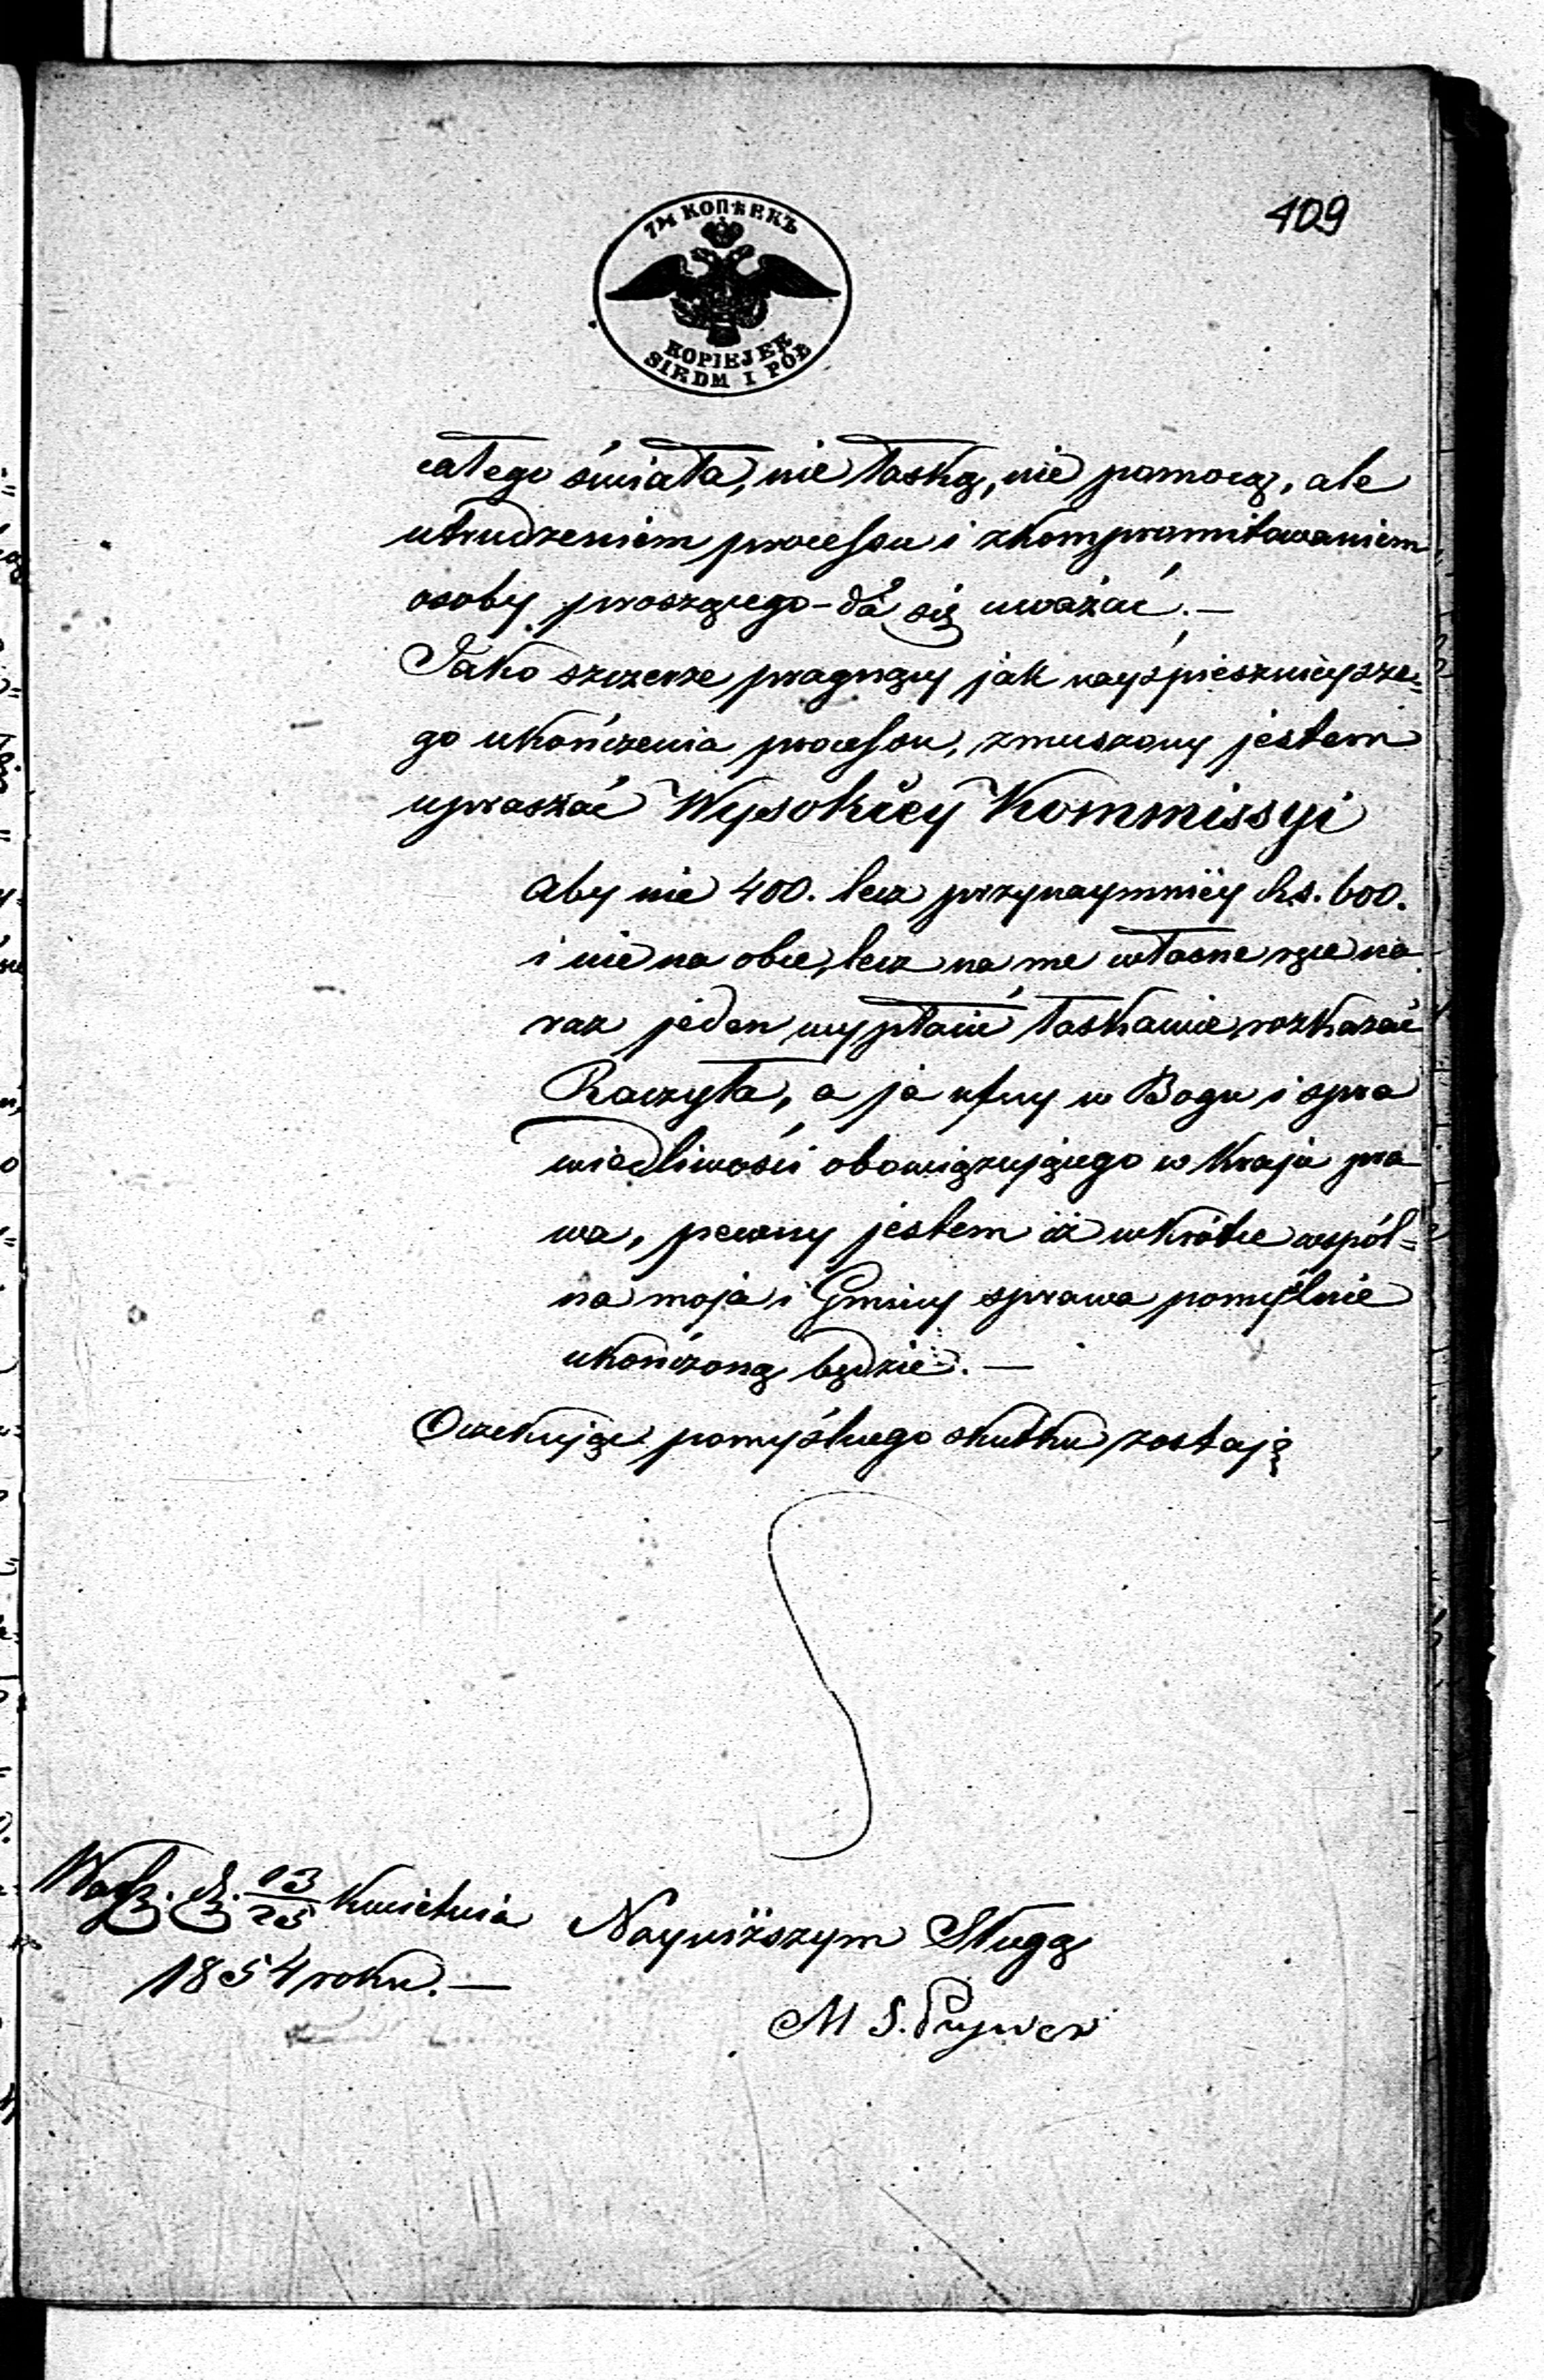 409
7½ КОПѢЕКЪ
KOPIEJEK
SIEDM I PÓŁ
całego świata, nie łaską, nie pomocą, ale
utrudzeniem processu i zkompromitowaniem
osoby proszącego – dá się uważać. –
Jako szczerze pragnący jak nayśpiesznieysze=
go ukończenia processu, zmuszony jestem
upraszać Wysokiéy Kommissyi
aby nie 400. lecz przynaymniéy Rs. 600.
i nie na obie, lecz na me własne ręce na
raz jeden wypłacić łaskawie rozkazać
Raczyła, a ja ufny w Bogu i spra
wiedliwości obowiązującego w Kraju pra
wa, pewny jestem iż wkrótce wspól=
na moja i Gminy sprawa pomyślnie
ukończoną będzie. –
Oczekując pomyślnego skutku zostaję
d. 13/25 Kwietnia
1854 roku. –
Nayniższym Sługą
M S.